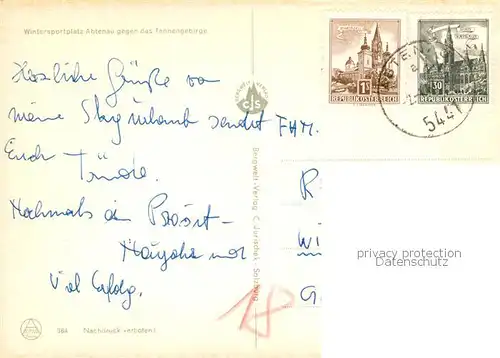 Wintersportplatz Abtenau gegen das Tennengebirge
Herzliche Grüße von
meine Skiurlaub sendet FAM.
Euch
Nochmals ein Prosit
Viel Erfolg.
Bergwelt-Verlag C. Jurischek, Salzburg
CJS
364 Nachdruck verboten!
1S
REPUBLIK ÖSTERREICH
30
REPUBLIK ÖSTERREICH
5441
R
Wi
G
18
privacy protection
Datenschutz